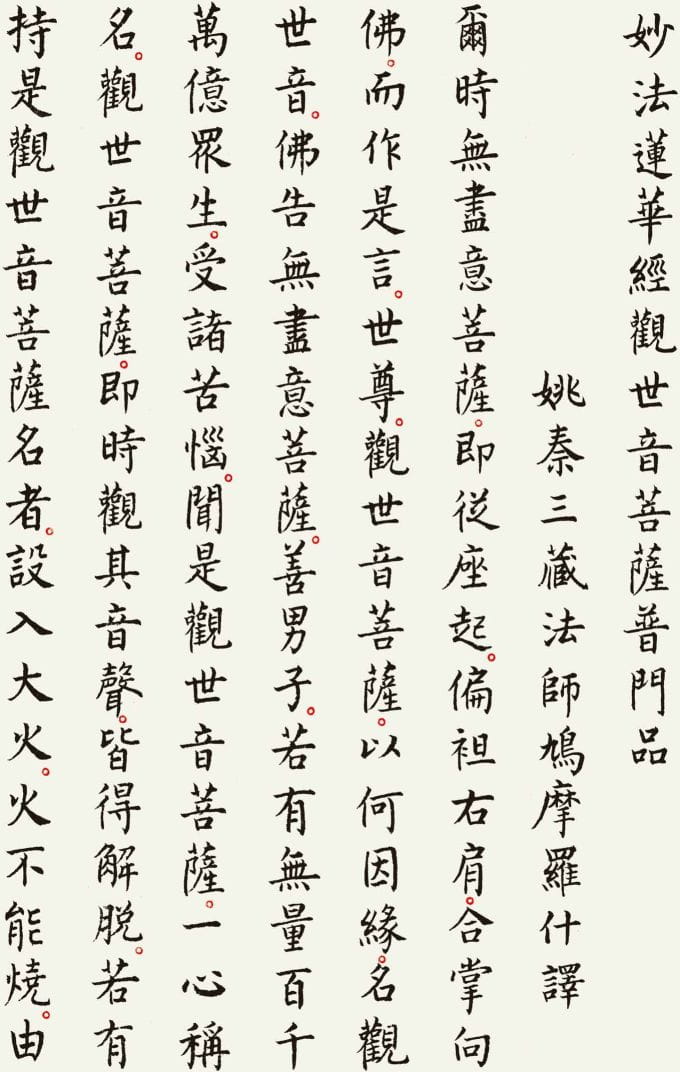 妙法蓮華經觀世音菩薩普門品
姚秦三藏法師鳩摩羅什譯
爾時無盡意菩薩。即從座起。偏袒右肩。合掌向
佛。而作是言。世尊。觀世音菩薩。以何因緣。名觀
世音。佛告無盡意菩薩。善男子。若有無量百千
萬億眾生。受諸苦惱。聞是觀世音菩薩。一心稱
名。觀世音菩薩。即時觀其音聲。皆得解脱。若有
持是觀世音菩薩名者。設入大火。火不能燒。由